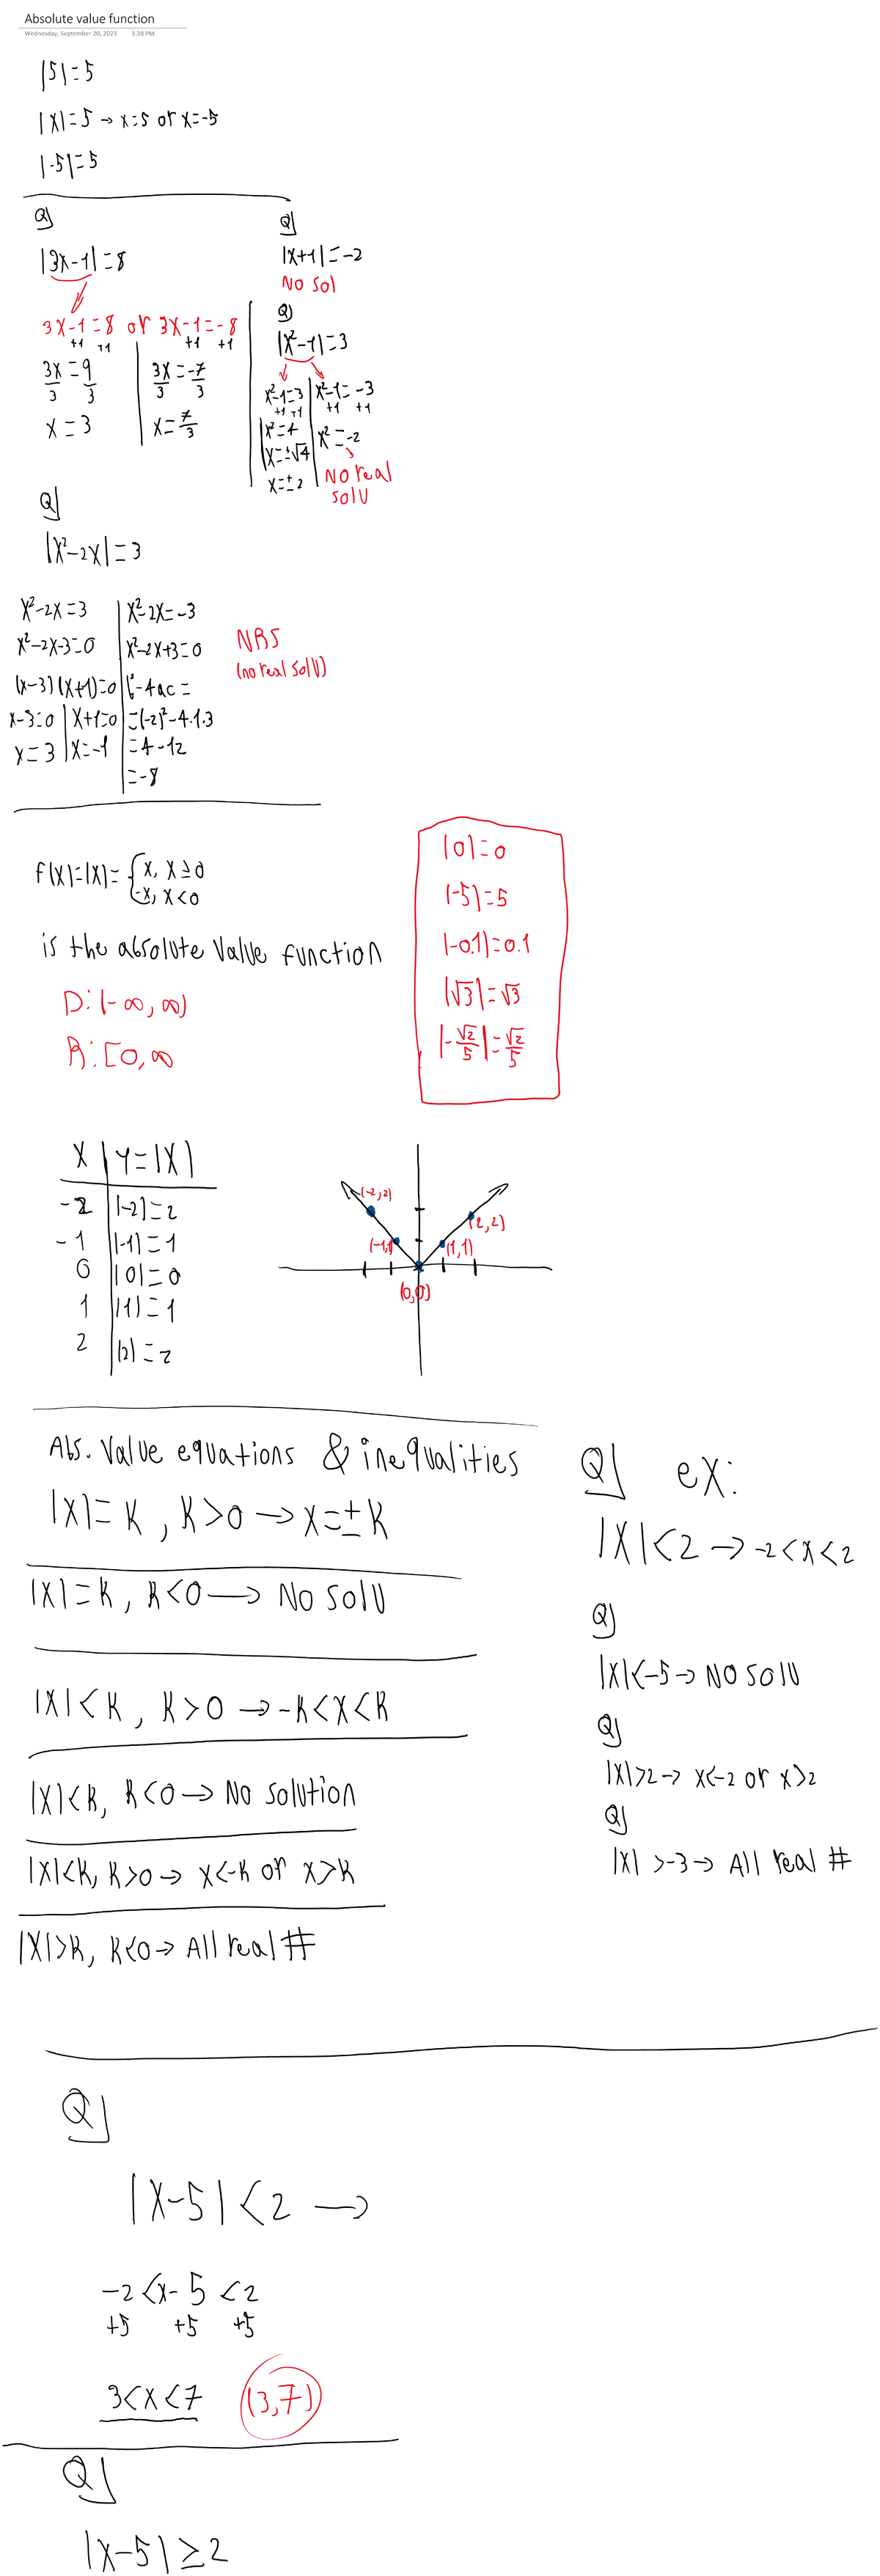 Absolute value function
Wednesday, September 20, 2023 3:28 PM
|5|=5
|x|=5 → x=5 or x=-5
|-5|=5
Q)
|3x-1|=8
3x-1=8 or 3x-1=-8
+1 +1 +1 +1
3x=9
3 3
x=3
3x=-7
3 3
x=7/3
Q)
|x+1|=-2
No sol
Q)
|x²-1|=3
x²-1=3
+1 +1
x²=4
x=±√4
x=±2
x²-1=-3
+1 +1
x²=-2
No real
solu
Q)
|x²-2x|=3
x²-2x=3
x²-2x-3=0
(x-3)(x+1)=0
x-3=0 | x+1=0
x=3 | x=-1
x²-2x=-3
x²-2x+3=0
b²-4ac=
=(-2)²-4·1·3
=4-12
=-8
NRS
(no real solu)
f(x)=|x|={x, x≥0
-x, x<0
is the absolute value function
D:(-∞,∞)
R:[0,∞
|0|=0
|-5|=5
|-0.1|=0.1
|√3|=√3
|-√2/5|=√2/5
x | y=|x|
-2 | |-2|=2
-1 | |-1|=1
0 | |0|=0
1 | |1|=1
2 | |2|=2
(-2,2)
(2,2)
(-1,1
(1,1)
(0,0)
Abs. Value equations & inequalities
|x|=k, k>0 → x=±k
|x|=k, k<0 → No solu
|x|<k, k>0 → -k<x<k
|x|<k, k<0 → No solution
|x|<k, k>0 → x<-k or x>k
|x|>k, k<0 → All real #
Q) ex:
|x|<2 → -2<x<2
Q)
|x|<-5 → No solu
Q)
|x|>2 → x<-2 or x>2
Q)
|x|>-3 → All real #
Q)
|x-5|<2 →
-2<x-5<2
+5 +5 +5
3<x<7 (3,7)
Q)
|x-5|≥2